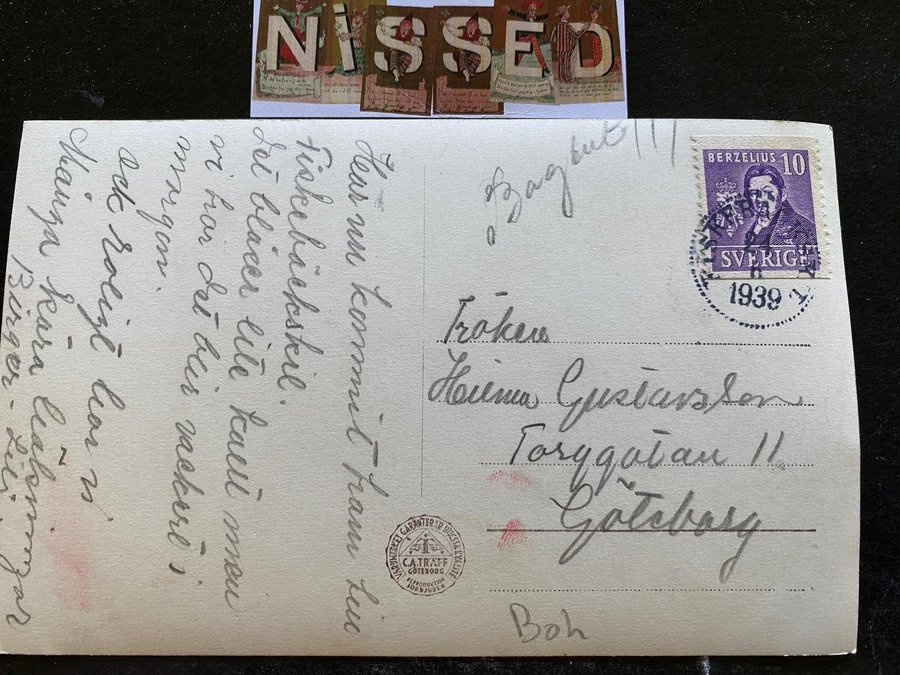 NiSSED
Har nu kommit fram till
Fiskebäckskil.
det blåser lite kallt men
vi har det blir vackert i
morgon.
och roligt har vi
Många kära hälsningar
Birger - Lily
BERZELIUS 10
SVERIGE
FISKEBÄCKSKIL
24
6
1939
Fröken
Hilma Gustavsson
Torggatan 11
Göteborg
VARUMÄRKET GARANTERAR HÖGSTA KVALITÉ
C.A. TRÄFF
GÖTEBORG
REPRODUKTION
FÖRBJUDEN
Boh